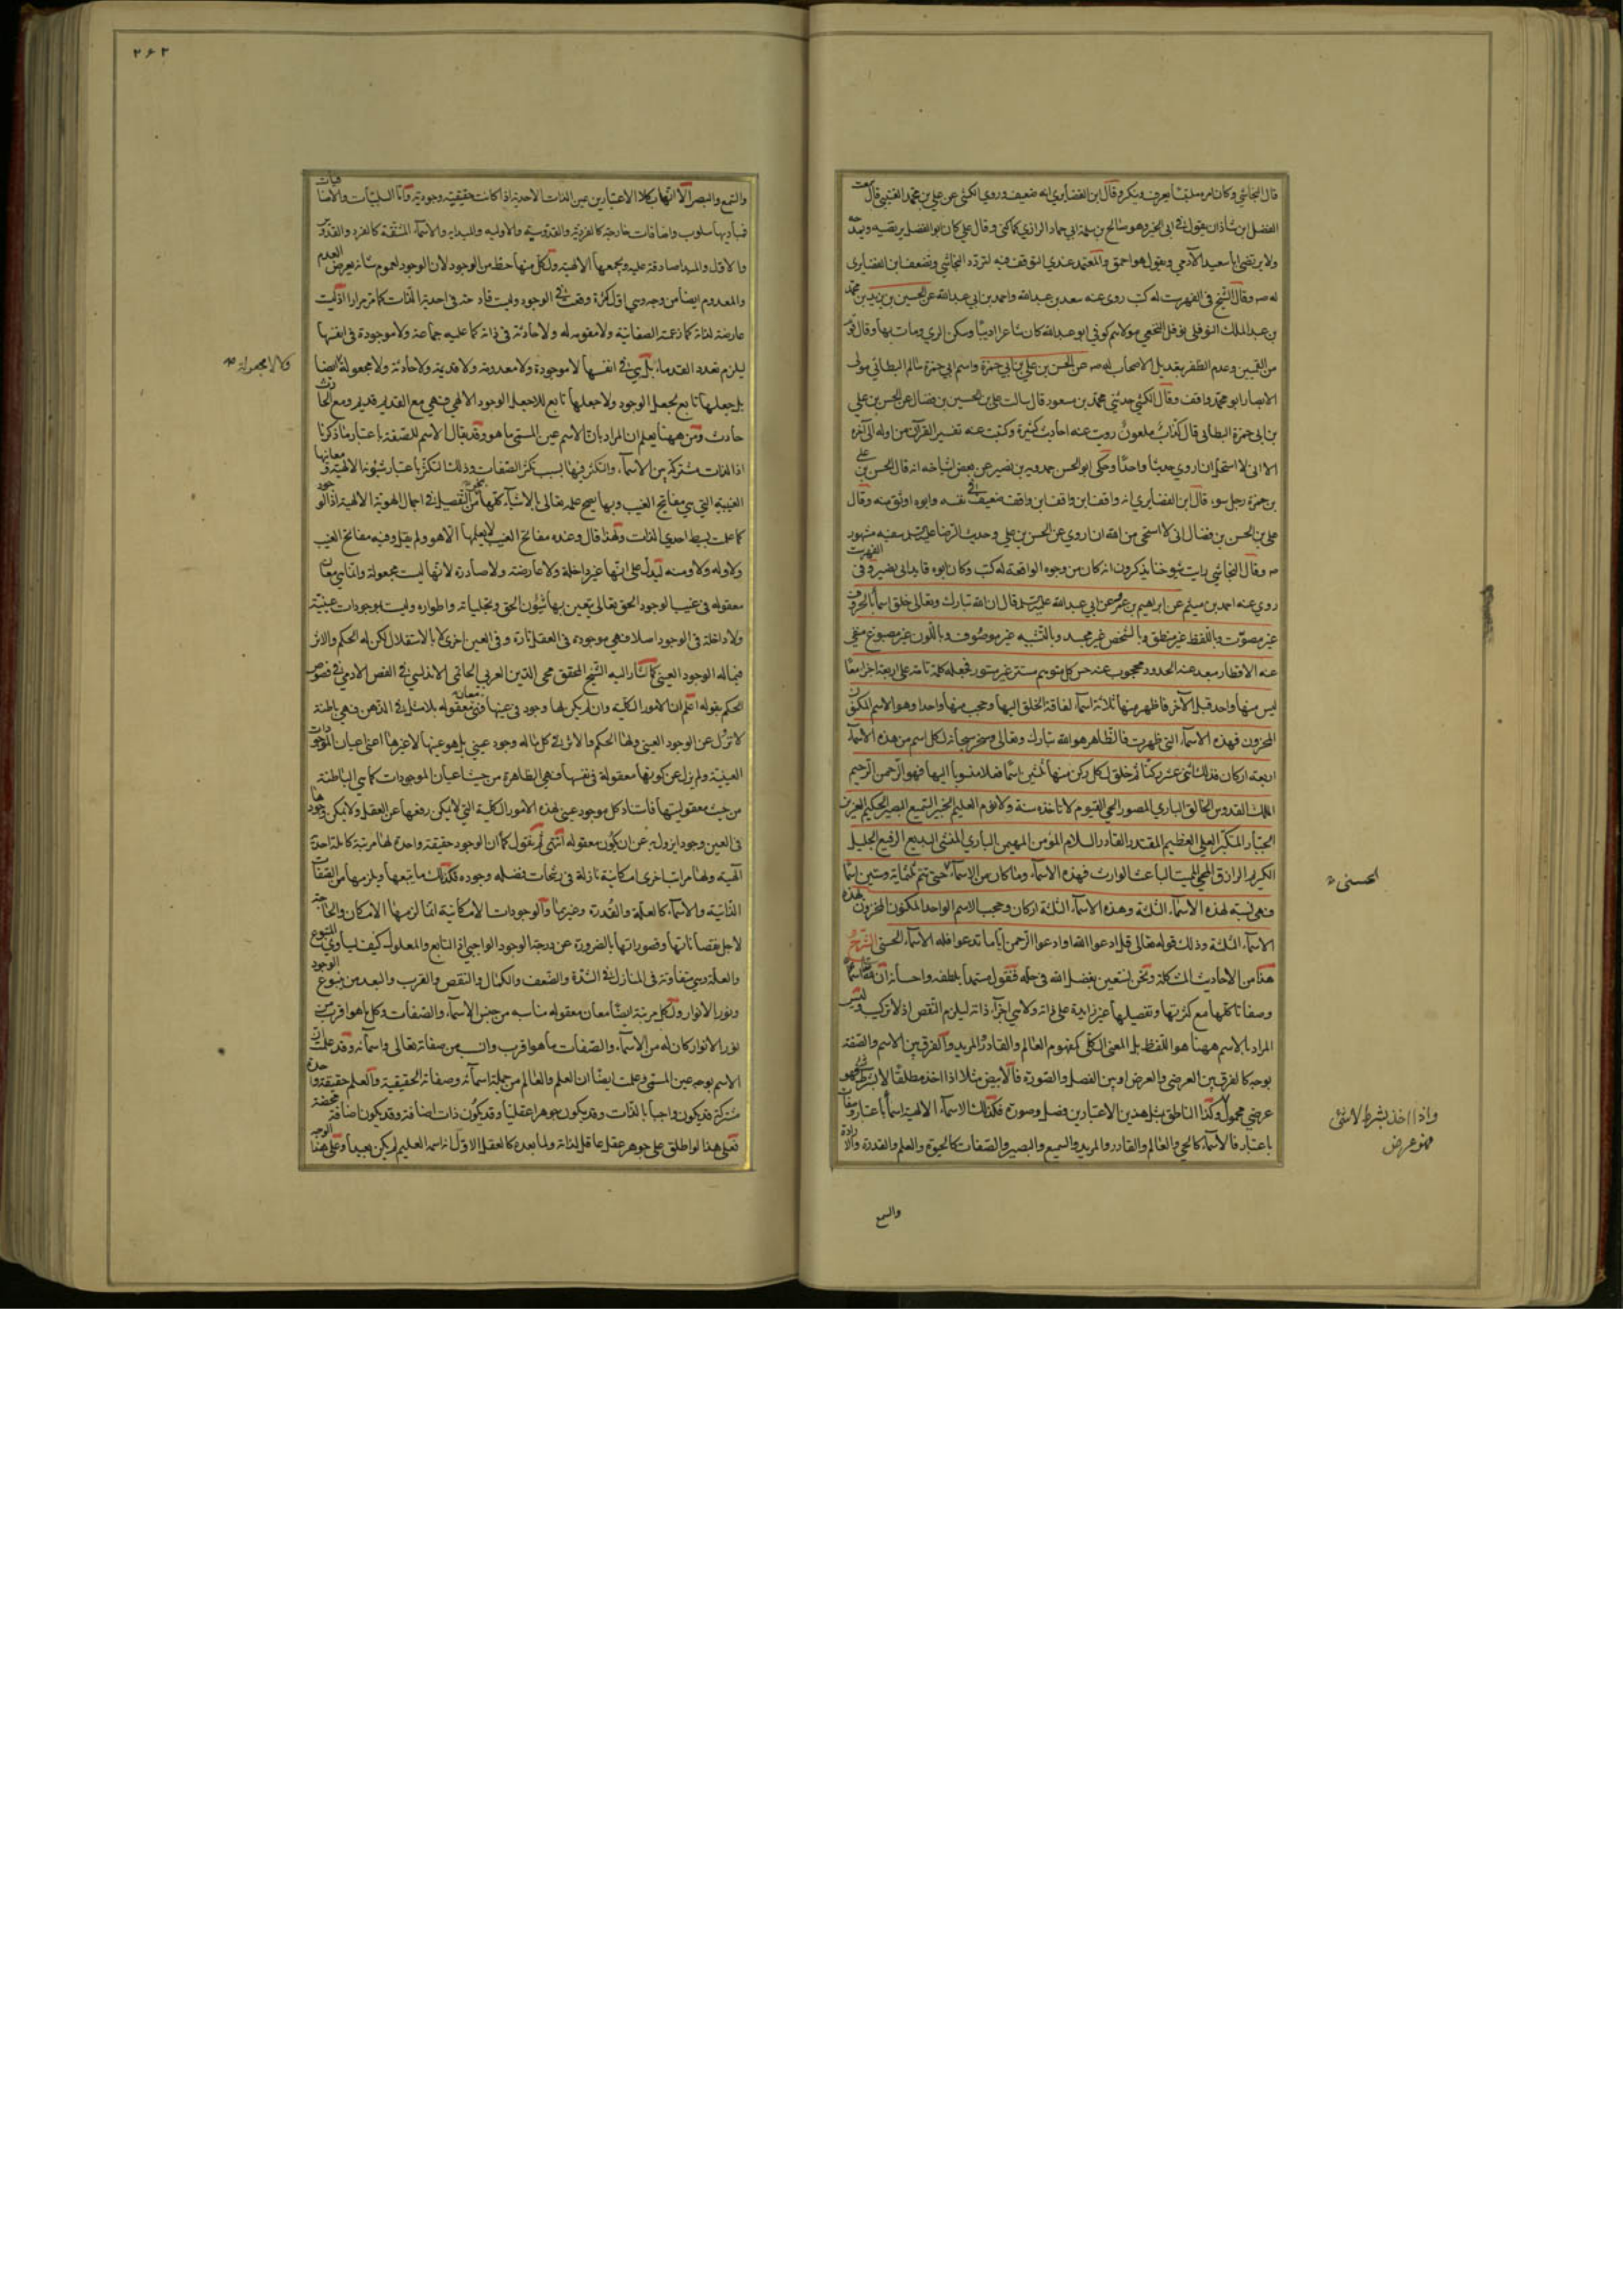 قال النجاشي وكان امره ملتبسا يعرف وينكر وقال ابن الغضايري انه ضعيف وروى الكشي عن علي بن محمد القتيبي قال سمعت
الفضل ابن شاذان يقول في ابي الخير وهو صالح بن سلمة ابي حماد الرازي كما كنى وقال علي كان ابو الفضل يرتضيه ويمدحه
ولا يرتضي ابا سعيد الآدمي ويقول هو احمق والمعتمد عندي التوقف فيه لتردد النجاشي وتضعيف ابن الغضايري
له صه وقال الشيخ في الفهرست له كتب روى عنه سعد بن عبد الله واحمد بن ابي عبد الله عن الحسين بن يزيد بن محمد
بن عبد الملك النوفلي نوفل النخعي مولاهم كوفي ابو عبد الله كان شاعرا اديبا وسكن الري ومات بها وقال قوم
من القميين وعدم الظفر بتعديل الاصحاب له صه عن الحسن بن علي بن ابي حمزة واسم ابي حمزة سالم البطائني مولى
الانصار ابو محمد واقف وقال الكشي حدثني محمد بن مسعود قال سالت علي بن الحسين بن فضال عن الحسن بن علي
بن ابي حمزة البطائني قال كذاب ملعون رويت عنه احاديث كثيرة وكتبت عنه تفسير القرآن من اوله الى آخره
الا اني لا استحل ان اروي حديثا واحدا وحكى ابو الحسن حمدويه بن نصير عن بعض اشياخه انه قال الحسن بن علي
بن حمزة رجل سوء قال ابن الغضايري انه واقف ابن واقف ضعيف في نفسه وابوه اوثق منه وقال
علي بن الحسن بن فضال اني لا استحي من الله ان اروي عن الحسن بن علي وحديث الرضا عليه السلم فيه مشهور
صه وقال النجاشي رايت شيوخنا يذكرون انه كان من وجوه الواقفة له كتب وكان ابوه قايد ابي بصير وفي الفهرست
روى عنه احمد بن ميثم عن ابراهيم بن عمر عن ابي عبد الله عليه السلم قال ان الله تبارك وتعالى خلق اسما بالحروف
غير مصوت وباللفظ غير منطق وبالشخص غير مجسد وبالتشبيه غير موصوف وباللون غير مصبوغ منفي
عنه الاقطار مبعد عنه الحدود محجوب عنه حس كل متوهم مستتر غير مستور فجعله كلمة تامة على اربعة اجزا معا
ليس منها واحد قبل الآخر فاظهر منها ثلاثة اسماء لفاقة الخلق اليها وحجب منها واحدا وهو الاسم المكنون
المخزون فهذه الاسماء التي ظهرت فالظاهر هو الله تبارك وتعالى وسخر سبحانه لكل اسم من هذه الاسماء
اربعة اركان فذلك اثنى عشر ركنا ثم خلق لكل ركن منها ثلثين اسما فعلا منسوبا اليها فهو الرحمن الرحيم
الملك القدوس الخالق الباري المصور الحي القيوم لا تاخذه سنة ولا نوم العليم الخبير السميع البصير الحكيم العزيز
الجبار المتكبر العلي العظيم المقتدر القادر السلام المؤمن المهيمن الباري المنشي البديع الرفيع الجليل
الكريم الرازق المحيي المميت الباعث الوارث فهذه الاسماء وما كان من الاسماء حتى تتم ثلثماية وستين اسما
فهي نسبة لهذه الاسماء الثلثة وهذه الاسماء الثلثة اركان وحجب الاسم الواحد المكنون المخزون بهذه
الاسماء الثلثة وذلك قوله تعالى قل ادعوا الله او ادعوا الرحمن ايا ما تدعوا فله الاسماء الحسنى الشرح
هذا من الاحاديث المشكلة ونحن نستعين بفضل الله في حله فنقول مستمدا بلطفه واحسانه ان لله اسماء
وصفاتا كلها مع كثرتها وتفصيلها غير زايدة على ذاته ولا هي اجزاء ذاته ليلزم النقص اذ لا تركيب وليس
المراد بالاسم ههنا هو اللفظ بل المعنى الكلي كمفهوم العالم والقادر المريد والفرق بين الاسم والصفة
بوجه كالفرق بين العرضي والعرض او بين الفصل والصورة فالابيض مثلا اذا اخذ مطلقا لا بشرط شيء فهو
عرضي محمول وكذا الناطق بمثل هذين الاعتبارين فصل وصورة فكذلك الاسماء الالهية اسماء باعتبار وصفات
باعتبار فالاسماء كالحي والعالم والقادر والمريد والسميع والبصير والصفات كالحيوة والعلم والقدرة والارادة
الحسنى
واذا اخذ بشرط لا شئ
فهو عرض
والسمع
٢۶٣
والسمع والبصر الا انها بكلا الاعتبارين عين الذات الاحدية اذا كانت حقيقية وجودية واما السلبيات والاضافيات
فمباديها سلوب واضافات خارجية كالفردية والقدوسية والاولية والمبدائية والاسماء المشتقة كالفرد والقدوس
والاول والمبدا صادقة عليه ويجمعها الالهية ولكل منها حظ من الوجود لان الوجود لعموم شانه يعرض العدم
والمعدوم ايضا من وجه وهي اول كثرة وقعت في الوجود وليست قادحة في احدية الذات كما مر مرارا اذ ليست
عارضة لذاته كما زعمته الصفاتية ولا مقومة له ولا حادثة في ذاته كما عليه جماعة ولا موجودة في انفسها
ليلزم تعدد القدماء بل هي في انفسها لا موجودة ولا معدومة ولا قديمة ولا حادثة ولا مجعولة ايضا
بل جعلها تابع لجعل الوجود ولا جعلها تابع للاجعل الوجود الالهي فهي مع القديم قديم ومع الحادث
حادث ومن ههنا يعلم ان المراد بان الاسم عين المسمى ما هو وقد يقال الاسم للصفة باعتبار ما ذكرنا
اذ الذات مشتركة بين الاسماء والتكثر فيها بسبب تكثر الصفات وذلك التكثر باعتبار شئونها الالهية ومعانيها
الغيبية التي هي مفاتيح الغيب وبها يصح علمه تعالى بالاشياء كلها على التفصيل في اجمال الهوية الالهية اذ الوجود
كما علمت بسيط احدي الذات ولهذا قال وعنده مفاتح الغيب لا يعلمها الا هو ولم يقل وفيه مفاتح الغيب
ولا وله ولا ومنه ليدل على انها غير داخلة ولا عارضة ولا صادرة لانها ليست مجعولة وانما هي معان
معقولة في غيب الوجود الحق تعالى يتعين بها شئون الحق وتجلياته واطواره وليست بوجودات عينية
ولا داخلة في الوجود اصلا فهي موجودة في العقل تارة وفي العين اخرى لا بالاستقلال لكن له الحكم والاثر
فيما له الوجود العيني كما اشار اليه الشيخ المحقق محي الدين العربي الحاتمي الاندلسي في الفص الادمي في فصوص
الحكم بقوله اعلم ان الامور الكلية وان لم يكن لها وجود في عينها فهي معقولة بلا شك في الذهن فهي باطنة
لا تزول عن الوجود العيني ولها الحكم والاثر في كل ما له وجود عيني بل هو عينها لا غيرها اعني اعيان الموجودات
العينية ولم يزل عن كونها معقولة في نفسها فهي الظاهرة من حيث اعيان الموجودات كما هي الباطنة
من حيث معقوليتها فاستناد كل موجود عيني لهذه الامور الكلية التي لا يمكن رفعها عن العقل ولا يمكن وجودها
في العين وجودا يزول به عن ان يكون معقولة انتهى ثم نقول كما ان الوجود حقيقة واحدة لها مرتبة كاملة احدية
الهية ولها مراتب اخرى امكانية نازلة في رشحات فضله وجوده فكذلك ما يتبعها ويلزمها من الصفات
الذاتية والاسماء كالعلم والقدرة وغيرها والوجودات الامكانية انما لزمها الامكان والحاجة
لاجل نقصاناتها وقصوراتها بالضرورة عن درجة الوجود الواجبي اذ التابع والمعلول كيف يساوي المتبوع
والعلة وهي متفاوتة في المنازل في الشدة والضعف والكمال والنقص والقرب والبعد من ينبوع الوجود
ونور الانوار ولكل مرتبة ايضا معان معقولة مناسبة من جنس الاسماء والصفات وكل ما هو اقرب من
نور الانوار كان له من الاسماء والصفات ما هو اقرب وانسب من صفاته تعالى واسمائه وقد علمت ان
الاسم بوجه عين المسمى وعلمت ايضا ان العلم والعالم من جملة اسمائه وصفاته الحقيقية والعلم حقيقة واحدة
مشتركة قد يكون واجبا بالذات وقد يكون جوهرا عقليا وقد يكون ذات اضافة وقد يكون اضافة محضة
فعلى هذا لو اطلق على جوهر عقل عاقل لذاته ولما بعده كالعقل الاول انه اسمه العليم لم يكن بعيدا وعلى هذا الوجه
ولا لا مجعولة صه